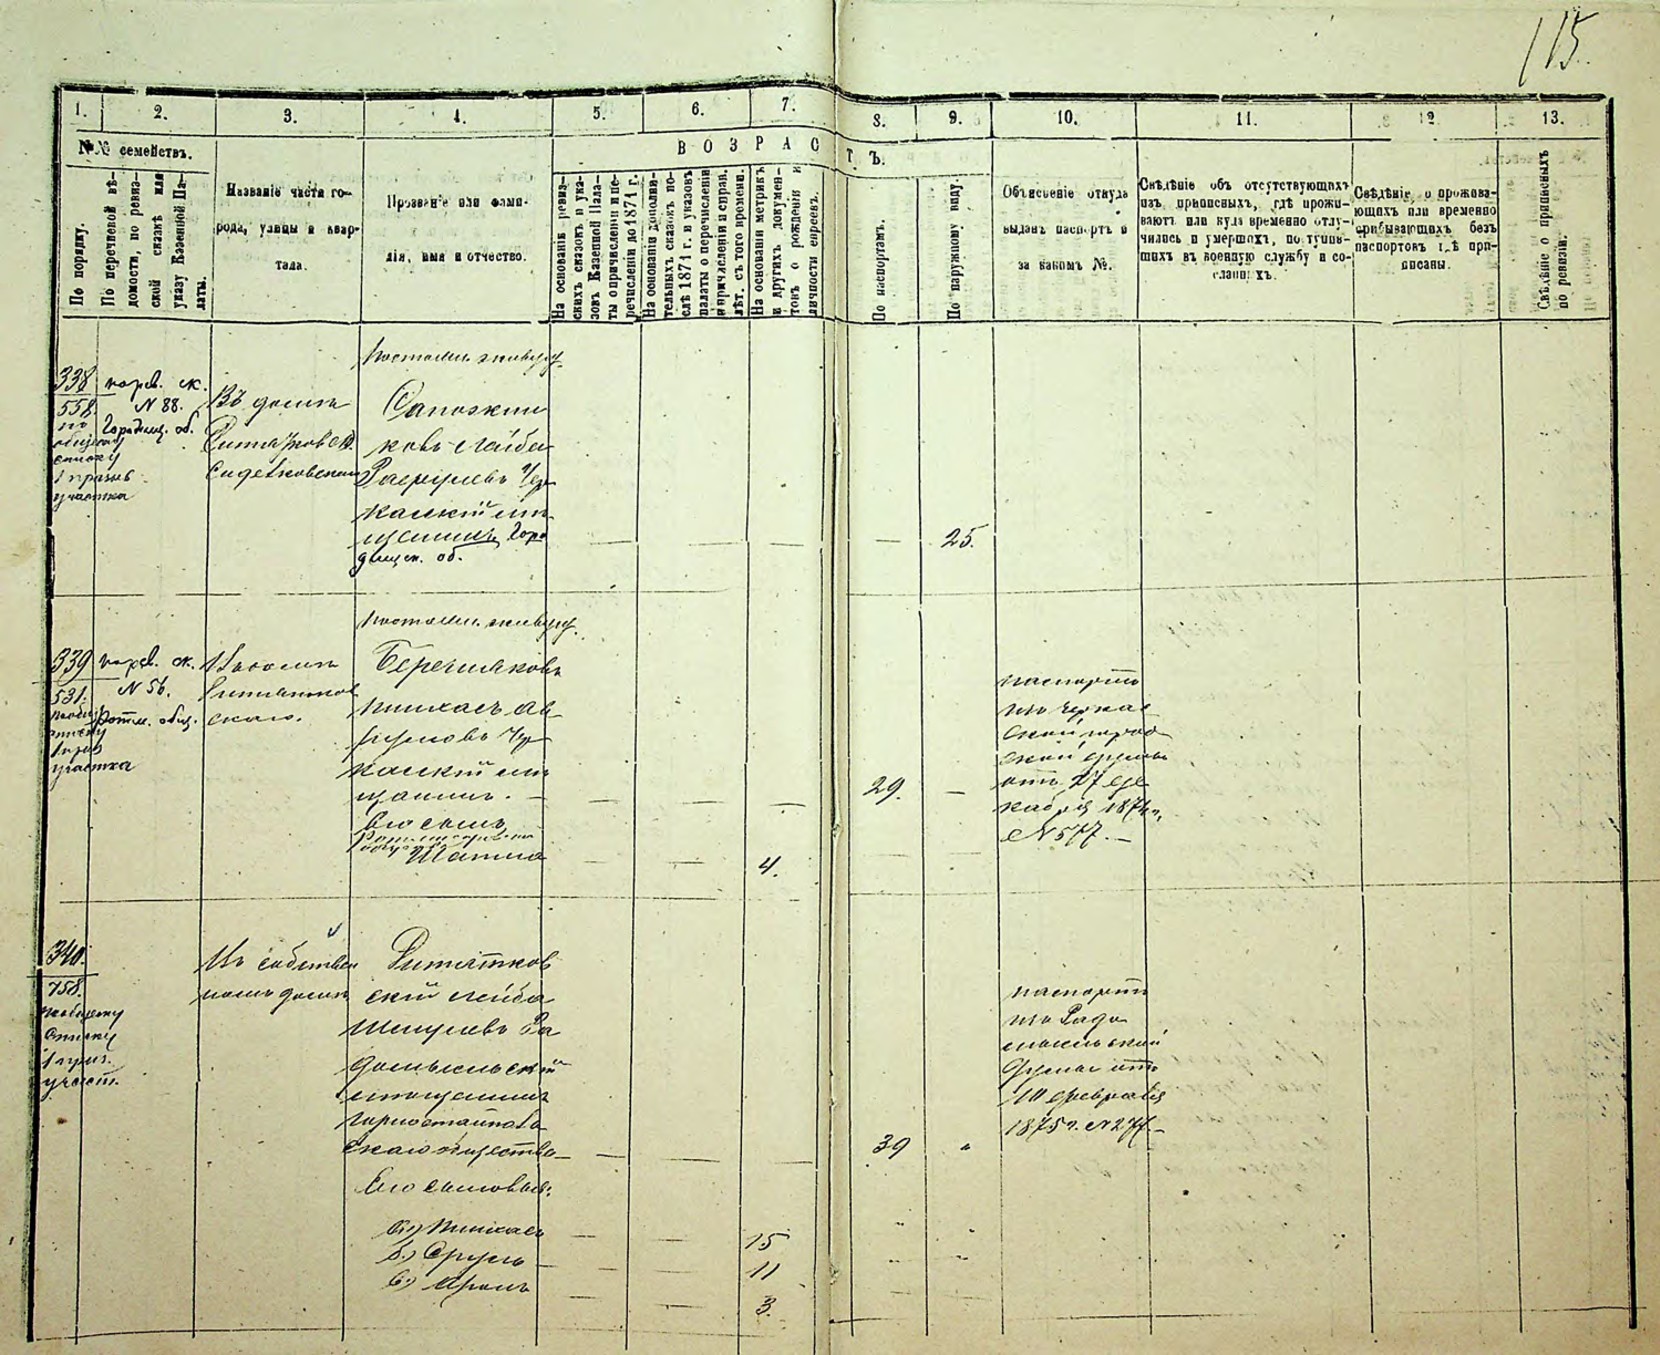 115.
1. 2. 3. 4. 5. 6. 7. 8. 9. 10. 11. 12 13.
№№ семействъ.
ВОЗРАСТЪ.
По порядку.
По перечневой вѣ-
домости, по ревиз-
ской сказкѣ или
указу Казенной Па-
латы.
Названіе части го-
рода, улицы и квар-
тала.
Прозваніе или фами-
лія, имя и отчество.
На основаніи ревиз-
скихъ сказокъ и ука-
зовъ Казенной Пала-
ты о причисленіи и пе-
речисленіи до 1871 г.
На основаніи дополни-
тельныхъ сказокъ по-
слѣ 1871 г. и указовъ
палаты о перечисленіи
и причисленіи и справ.
лѣт. съ того времени.
На основаніи метрикъ
и другихъ докумен-
товъ о рожденіи и
личности евреевъ.
По паспортамъ.
По наружному виду.
Объясненіе откуда
выданъ паспортъ и
за какимъ №.
Свѣдѣніе объ отсутствующихъ
изъ приписныхъ, гдѣ прожи-
ваютъ или куда временно отлу-
чились и умершихъ, поступив-
шихъ въ военную службу и со-
сланныхъ.
Свѣдѣніе о прожива-
ющихъ или временно
прибывающихъ безъ
паспортовъ гдѣ при-
писаны.
Свѣдѣніе о приписныхъ
по ревизіи.
338
558.
по
общему
списку
1 призыв
участка
по рев. ск.
N 88.
Городищ. об.
Въ домѣ
Сидельковскаго
Сапожни
ковъ Лейба
Чер
касскій мѣ
щанинъ Горо
дищен. об.
25.
339
531.
списку
участка
по рев. ск.
N 56.
Ротм. общ.
Въ домѣ
скаго.
Беречиаковъ
Пинхасъ Ав
румовъ Чер
касскій мѣ
щанинъ.
Его сынъ
4.
29.
паспортъ
изъ Черкас
ской город
ской управы
отъ 27 де
кабря 1874 г.
N 577.
340.
758.
по общему
списку
1 приз.
участ.
Въ собствен
номъ домѣ
Ритятков
скій Лейба
Шмулевъ Ра
домысльскій
мѣщанинъ
Горностайпольскаго общества
Его сыновья:
а.) Пинхасъ 15
б.) Сруль 11
в.) Аронъ 3.
39
паспортъ
изъ Радо
мысльской
Думы отъ
10 февраля
1875 г. N 277.